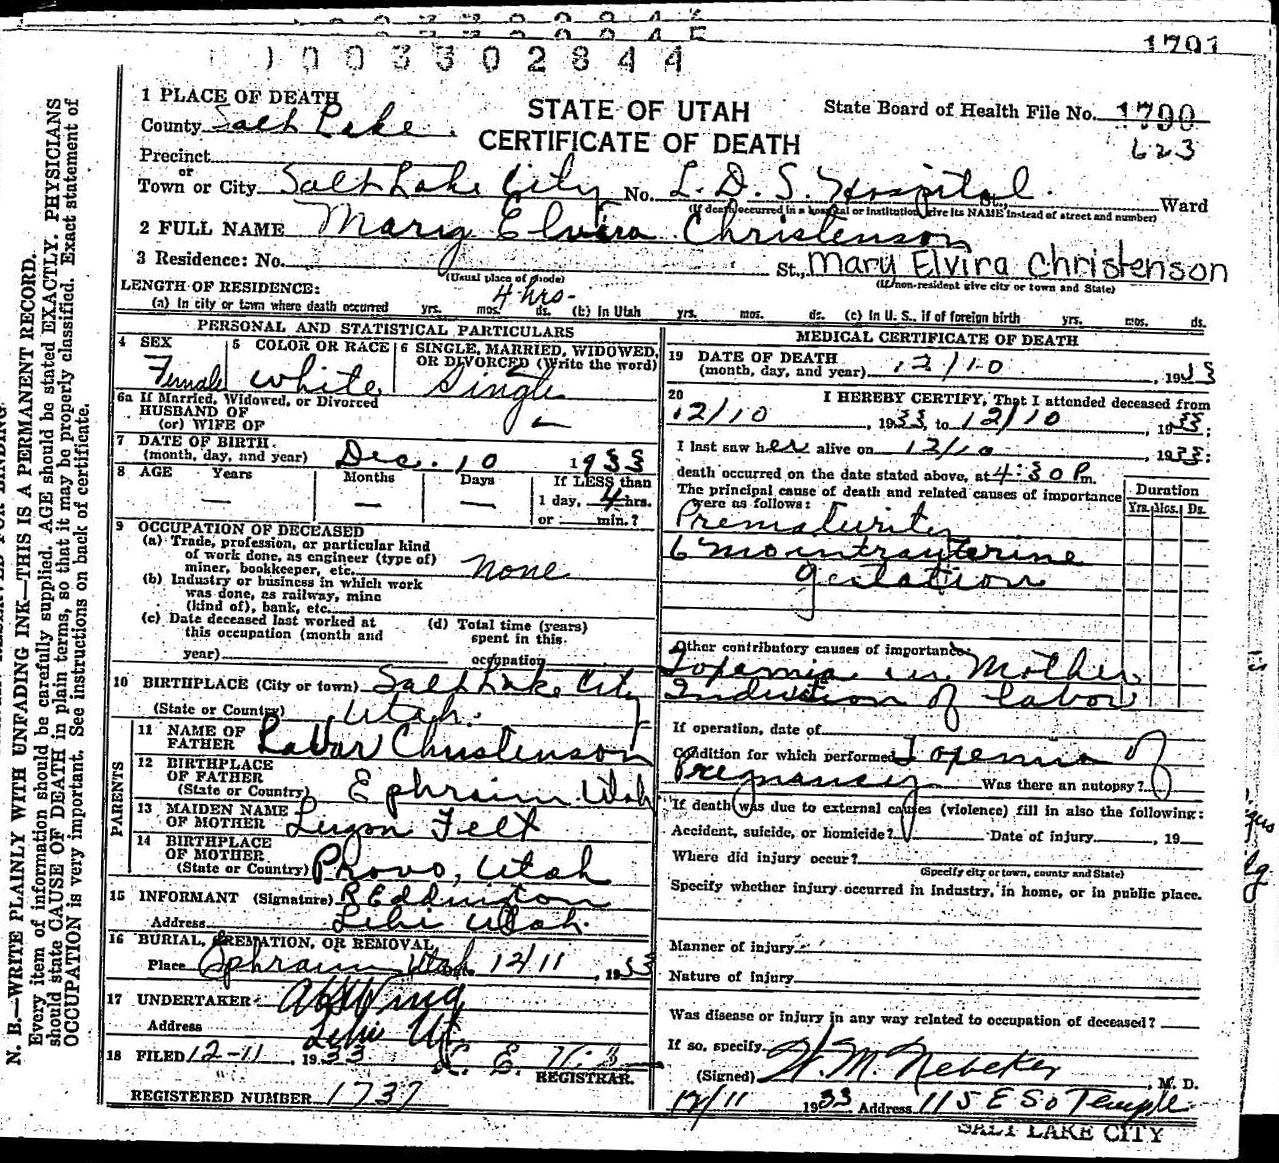 1791
1003302844
1 PLACE OF DEATH
STATE OF UTAH
CERTIFICATE OF DEATH
State Board of Health File No. 1790
623
County Salt Lake
Precinct
or
Town or City Salt Lake City No. L. D. S. Hospital St., Ward
(If death occurred in a hospital or institution, give its NAME instead of street and number)
2 FULL NAME Mary Elvira Christenson
3 Residence: No. St., Mary Elvira Christenson
(Usual place of abode)
(If non-resident give city or town and State)
LENGTH OF RESIDENCE: 4 hrs.
(a) In city or town where death occurred yrs. mos. ds. (b) In Utah yrs. mos. ds. (c) In U. S., if of foreign birth yrs. mos. ds.
PERSONAL AND STATISTICAL PARTICULARS
4 SEX Female
5 COLOR OR RACE white
6 SINGLE, MARRIED, WIDOWED, OR DIVORCED (Write the word) Single
6a If Married, Widowed, or Divorced
HUSBAND OF
(or) WIFE OF —
7 DATE OF BIRTH
(month, day, and year) Dec. 10 1933
8 AGE Years — Months — Days — If LESS than
1 day, 4 hrs.
or min.?
9 OCCUPATION OF DECEASED
(a) Trade, profession, or particular kind
of work done, as engineer (type of)
miner, bookkeeper, etc. none
(b) Industry or business in which work
was done, as railway, mine
(kind of), bank, etc.
(c) Date deceased last worked at
this occupation (month and
year)
(d) Total time (years)
spent in this
occupation
10 BIRTHPLACE (City or town) Salt Lake City
(State or Country) Utah.
PARENTS
11 NAME OF
FATHER LaVar Christenson
12 BIRTHPLACE
OF FATHER
(State or Country) Ephraim Utah
13 MAIDEN NAME
OF MOTHER Luzon Felt
14 BIRTHPLACE
OF MOTHER
(State or Country) Provo, Utah
15 INFORMANT (Signature) R Eddington
Address Lehi Utah.
16 BURIAL, CREMATION, OR REMOVAL
Place Ephraim Utah 12/11, 1933
17 UNDERTAKER
Address Lehi Ut
18 FILED 12-11, 1933
REGISTRAR.
REGISTERED NUMBER 1737
MEDICAL CERTIFICATE OF DEATH
19 DATE OF DEATH
(month, day, and year) 12/10, 1933
20 I HEREBY CERTIFY, That I attended deceased from
12/10, 1933, to 12/10, 1933;
I last saw her alive on 12/10, 1933;
death occurred on the date stated above, at 4:30 P m.
The principal cause of death and related causes of importance
were as follows:
Duration
Yrs. Mos. Ds.
Prematurity
6 mo intrauterine
gestation
Other contributory causes of importance:
Toxemia in Mother
Induction of labor
If operation, date of
Condition for which performed Toxemia of
Pregnancy Was there an autopsy?
If death was due to external causes (violence) fill in also the following:
Accident, suicide, or homicide? Date of injury, 19
Where did injury occur?
(Specify city or town, county and State)
Specify whether injury occurred in industry, in home, or in public place.
Manner of injury
Nature of injury
Was disease or injury in any way related to occupation of deceased?
If so, specify
(Signed) W. M. Nebeker, M. D.
12/11 1933 Address 115 E So Temple
SALT LAKE CITY
N. B.—WRITE PLAINLY WITH UNFADING INK—THIS IS A PERMANENT RECORD.
Every item of information should be carefully supplied. AGE should be stated EXACTLY. PHYSICIANS
should state CAUSE OF DEATH in plain terms, so that it may be properly classified. Exact statement of
OCCUPATION is very important. See instructions on back of certificate.